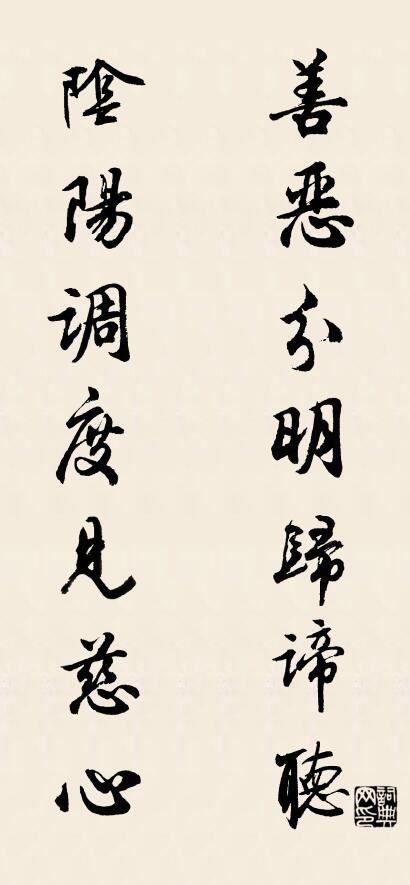 善惡分明歸諦聽
陰陽調度見慈心
詞典网印